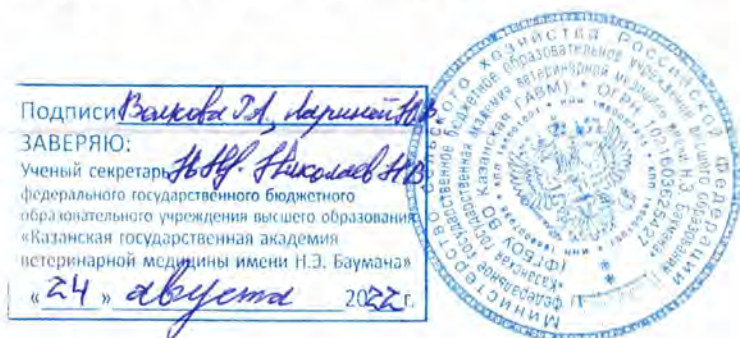 Подписи Волкова Р.А, Лариной Н.В.
ЗАВЕРЯЮ:
Ученый секретарь Николаев Н.В
федерального государственного бюджетного
образовательного учреждения высшего образования
«Казанская государственная академия
ветеринарной медицины имени Н.Э. Баумана»
«24» августа 2022 г.
Министерство сельского хозяйства Российской Федерации
федеральное государственное бюджетное образовательное учреждение высшего образования
«Казанская государственная академия ветеринарной медицины имени Н.Э. Баумана»
(ФГБОУ ВО Казанская ГАВМ) * ОГРН 1021603625427